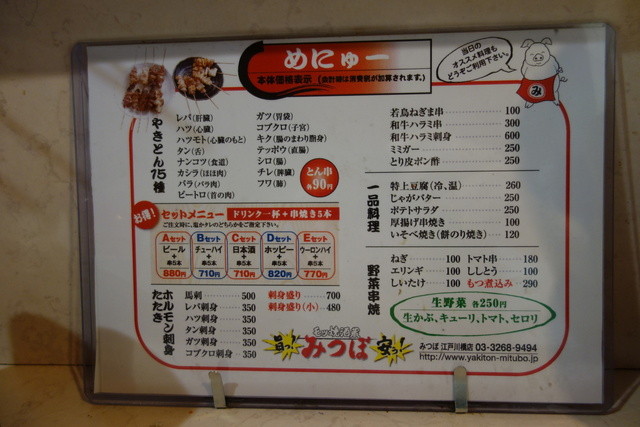 めにゅー
本体価格表示（会計時は消費税が加算されます。）
当日の
オススメ料理も
どうぞご利用下さい。
み
やきとん15種
レバ（肝臓）
ハツ（心臓）
ハツモト（心臓のもと）
タン（舌）
ナンコツ（食道）
カシラ（ほほ肉）
バラ（バラ肉）
ピートロ（首の肉）
ガツ（胃袋）
コブクロ（子宮）
キク（腸のまわり脂身）
テッポウ（直腸）
シロ（腸）
チレ（脾臓）
フワ（肺）
とん串
各90円
お得！
セットメニュー ドリンク一杯＋串焼き5本
ご注文時に、塩かタレのどちらかをご指定下さい。
Aセット
ビール
＋
串5本
880円
Bセット
チューハイ
＋
串5本
710円
Cセット
日本酒
＋
串5本
710円
Dセット
ホッピー
＋
串5本
820円
Eセット
ウーロンハイ
＋
串5本
770円
ホルモン刺身
たたき
馬刺 500
レバ刺身 350
ハツ刺身 350
タン刺身 350
ガツ刺身 350
コブクロ刺身 350
刺身盛り 700
刺身盛り（小） 480
若鳥ねぎま串 100
和牛ハラミ串 300
和牛ハラミ刺身 600
ミミガー 250
とり皮ポン酢 250
一品料理
特上豆腐（冷、温） 260
じゃがバター 250
ポテトサラダ 250
厚揚げ串焼き 100
いそべ焼き（餅のり焼き） 120
野菜串焼
ねぎ 100
エリンギ 100
しいたけ 100
トマト串 180
ししとう 100
もつ煮込み 290
生野菜 各250円
生かぶ、キューリ、トマト、セロリ
モツ焼酒蔵
旨っ！ みつぼ 安っ！
みつぼ 江戸川橋店 03-3268-9494
http://www.yakiton-mitubo.jp